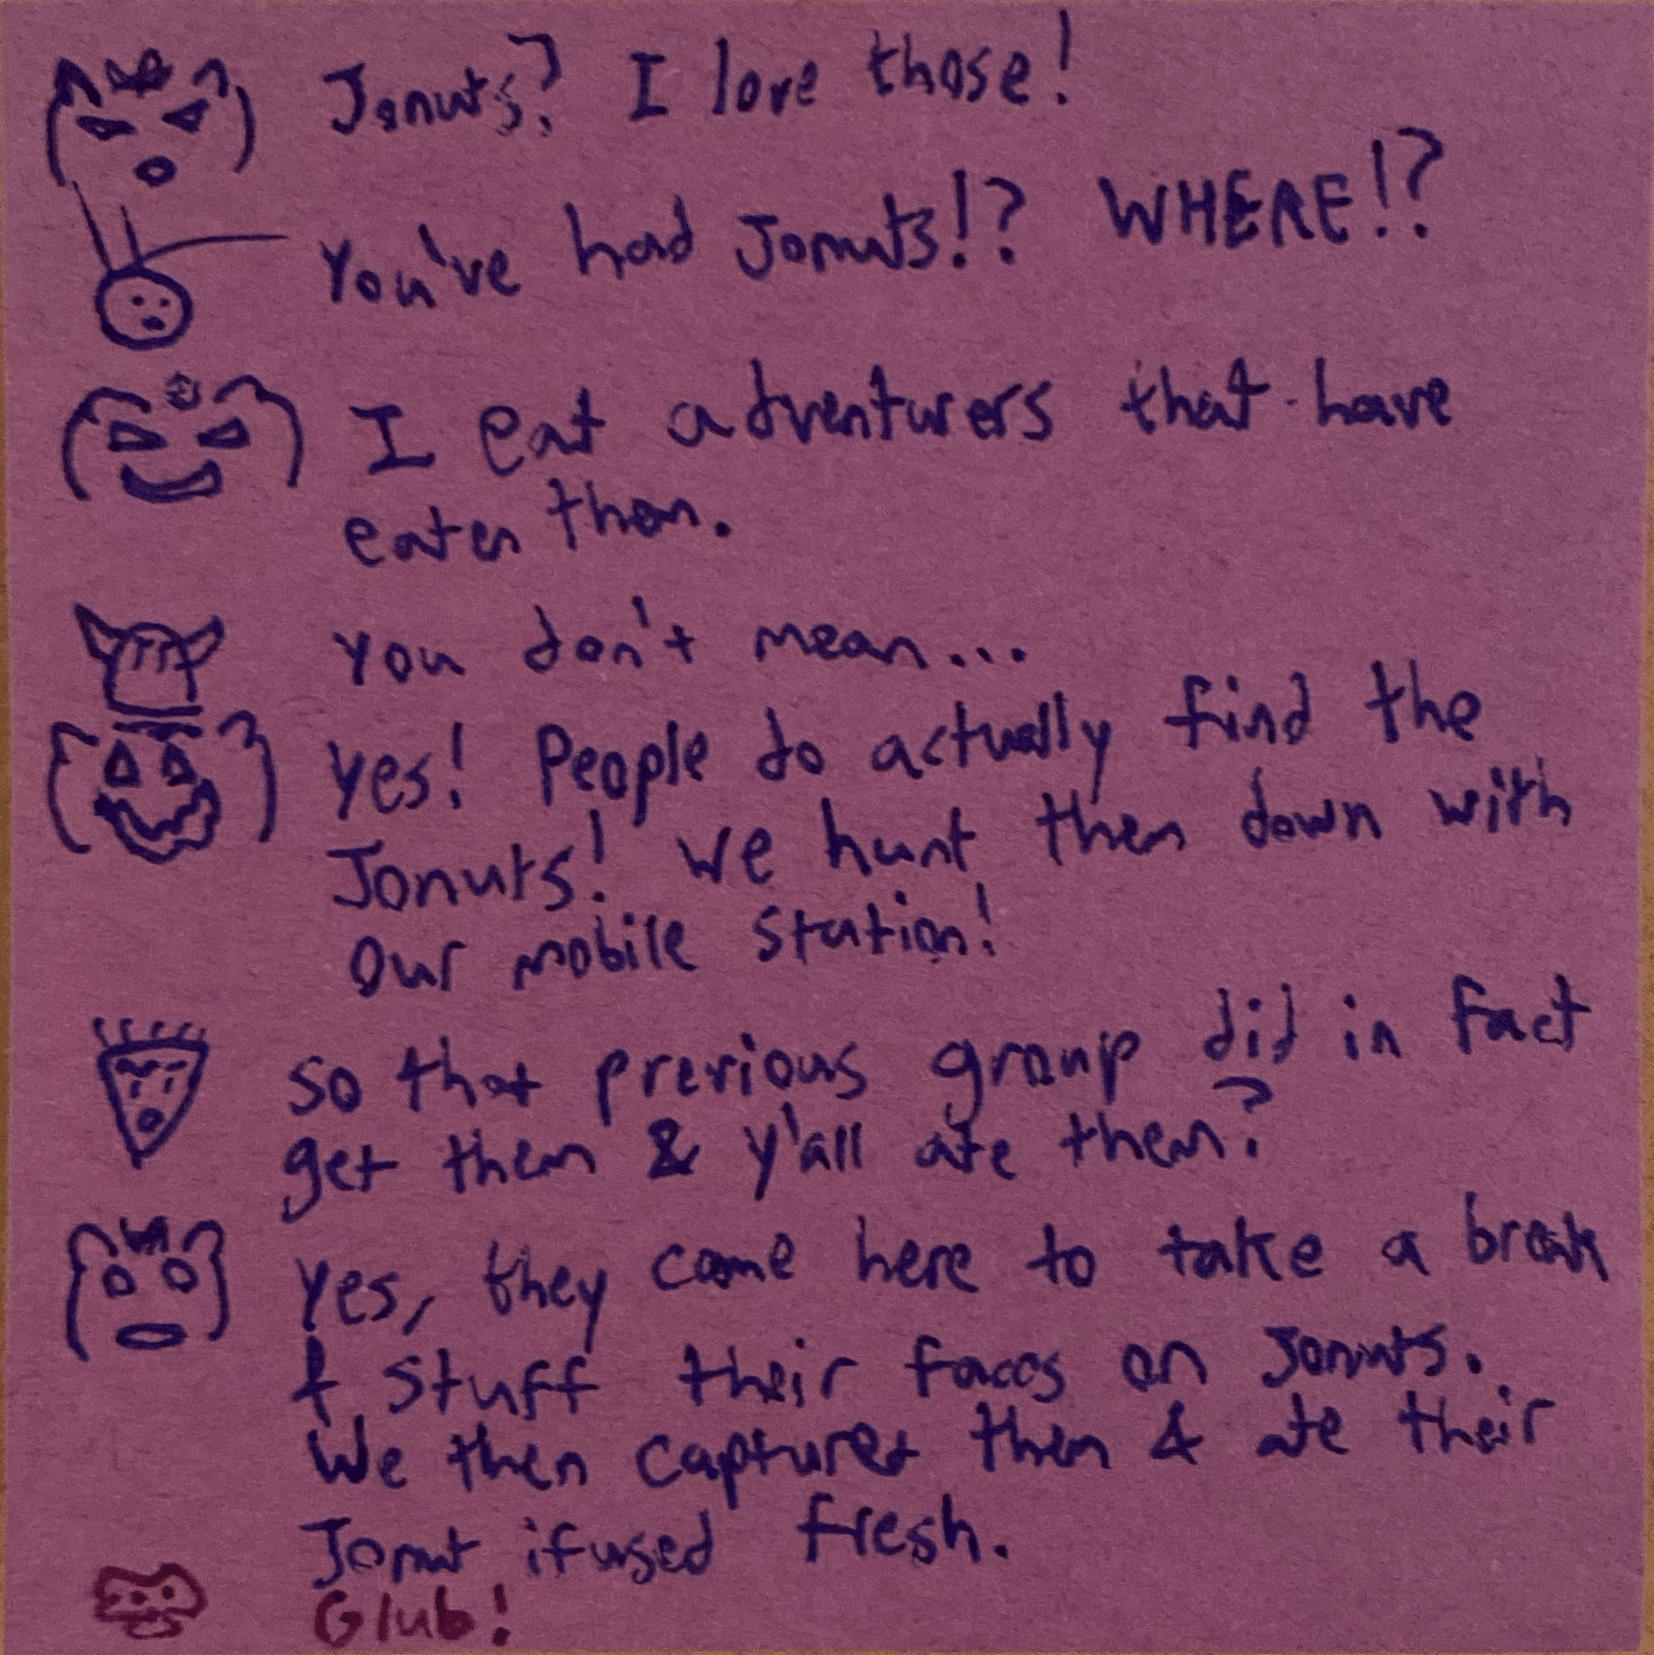 Jonuts? I love those!
You've had Jonuts!? WHERE!?
I eat adventurers that have
eaten them.
You don't mean...
Yes! People do actually find the
Jonuts! We hunt them down with
our mobile station!
So that previous group did in fact
get them & y'all ate them?
Yes, they come here to take a break
& stuff their faces on Jonuts.
We then captured them & ate their
Jonut ifused fresh.
Glub!